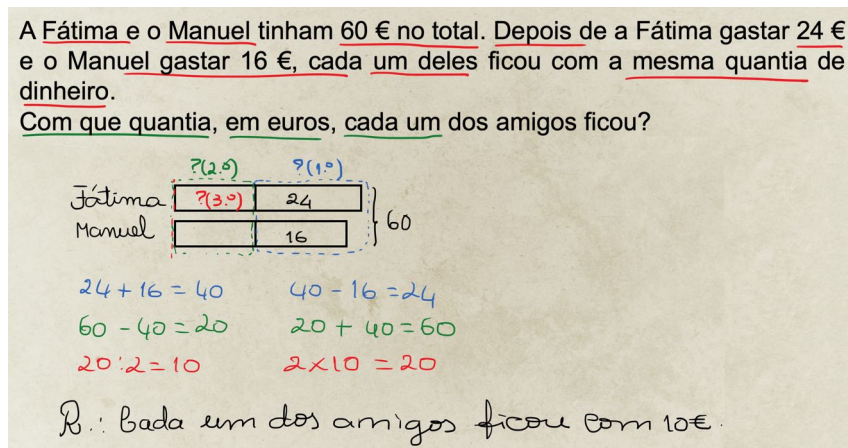 A Fátima e o Manuel tinham 60 € no total. Depois de a Fátima gastar 24 €
e o Manuel gastar 16 €, cada um deles ficou com a mesma quantia de
dinheiro.
Com que quantia, em euros, cada um dos amigos ficou?
?(2.º) ?(1.º)
Fátima ?(3.º) 24
Manuel 16
60
24 + 16 = 40 40 - 16 = 24
60 - 40 = 20 20 + 40 = 60
20 : 2 = 10 2 x 10 = 20
R.: Cada um dos amigos ficou com 10€.